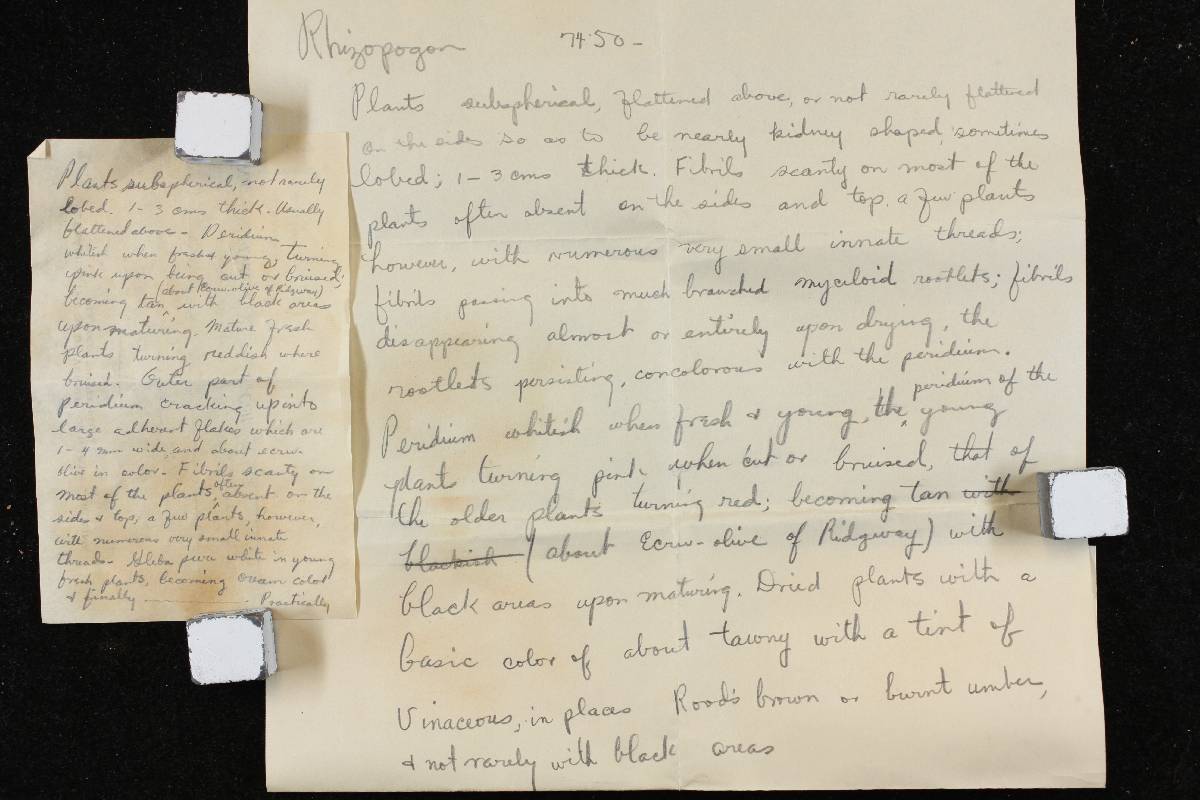 Rhizopogon 7450-
Plants subspherical, flattened above, or not rarely flattened
on the sides so as to be nearly kidney shaped, sometimes
lobed; 1-3 cms thick. Fibrils scanty on most of the
plants often absent on the sides and top. a few plants
however, with numerous very small innate threads;
fibrils passing into much branched myceloid rootlets; fibrils
disappearing almost or entirely upon drying, the
rootlets persisting, concolorous with the peridium.
Peridium whitish when fresh & young, the peridium of the young
plants turning pink when cut or bruised, that of
the older plants turning red; becoming tan with
blackish (about Ecru-olive of Ridgway) with
black areas upon maturing. Dried plants with a
basic color of about tawny with a tint of
Vinaceous, in places Rood's brown or burnt umber,
& not rarely with black areas
Plants subspherical, not rarely
lobed. 1-3 cms thick. Usually
flattened above- Peridium
whitish when fresh & young, turning
pink upon being cut or bruised;
becoming tan (about Ecru-olive of Ridgway) with black areas
upon maturing. Mature fresh
plants turning reddish where
bruised. Outer part of
peridium cracking up into
large adherent flakes which are
1-4 mm wide, and about ecru-
olive in color- Fibrils scanty on
most of the plants, often absent on the
sides & top; a few plants, however,
with numerous very small innate
threads- Gleba pure white in young
fresh plants, becoming cream color
& finally ———. Practically